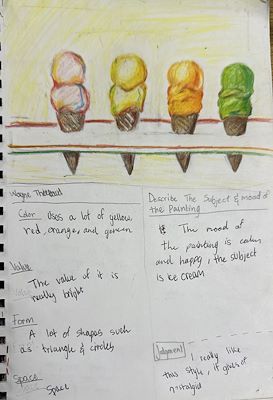 Wayne Thiebaud
Color Uses a lot of yellow,
red, orange, and green
Value
The value of it is
really bright
Form
A lot of shapes such
as triangle & circles
Space
Space
Describe The Subject & mood of
the Painting
The mood of
the painting is calm
and happy, the subject
is ice cream
Judgment
I really like
this style, it gives of
nostalgia